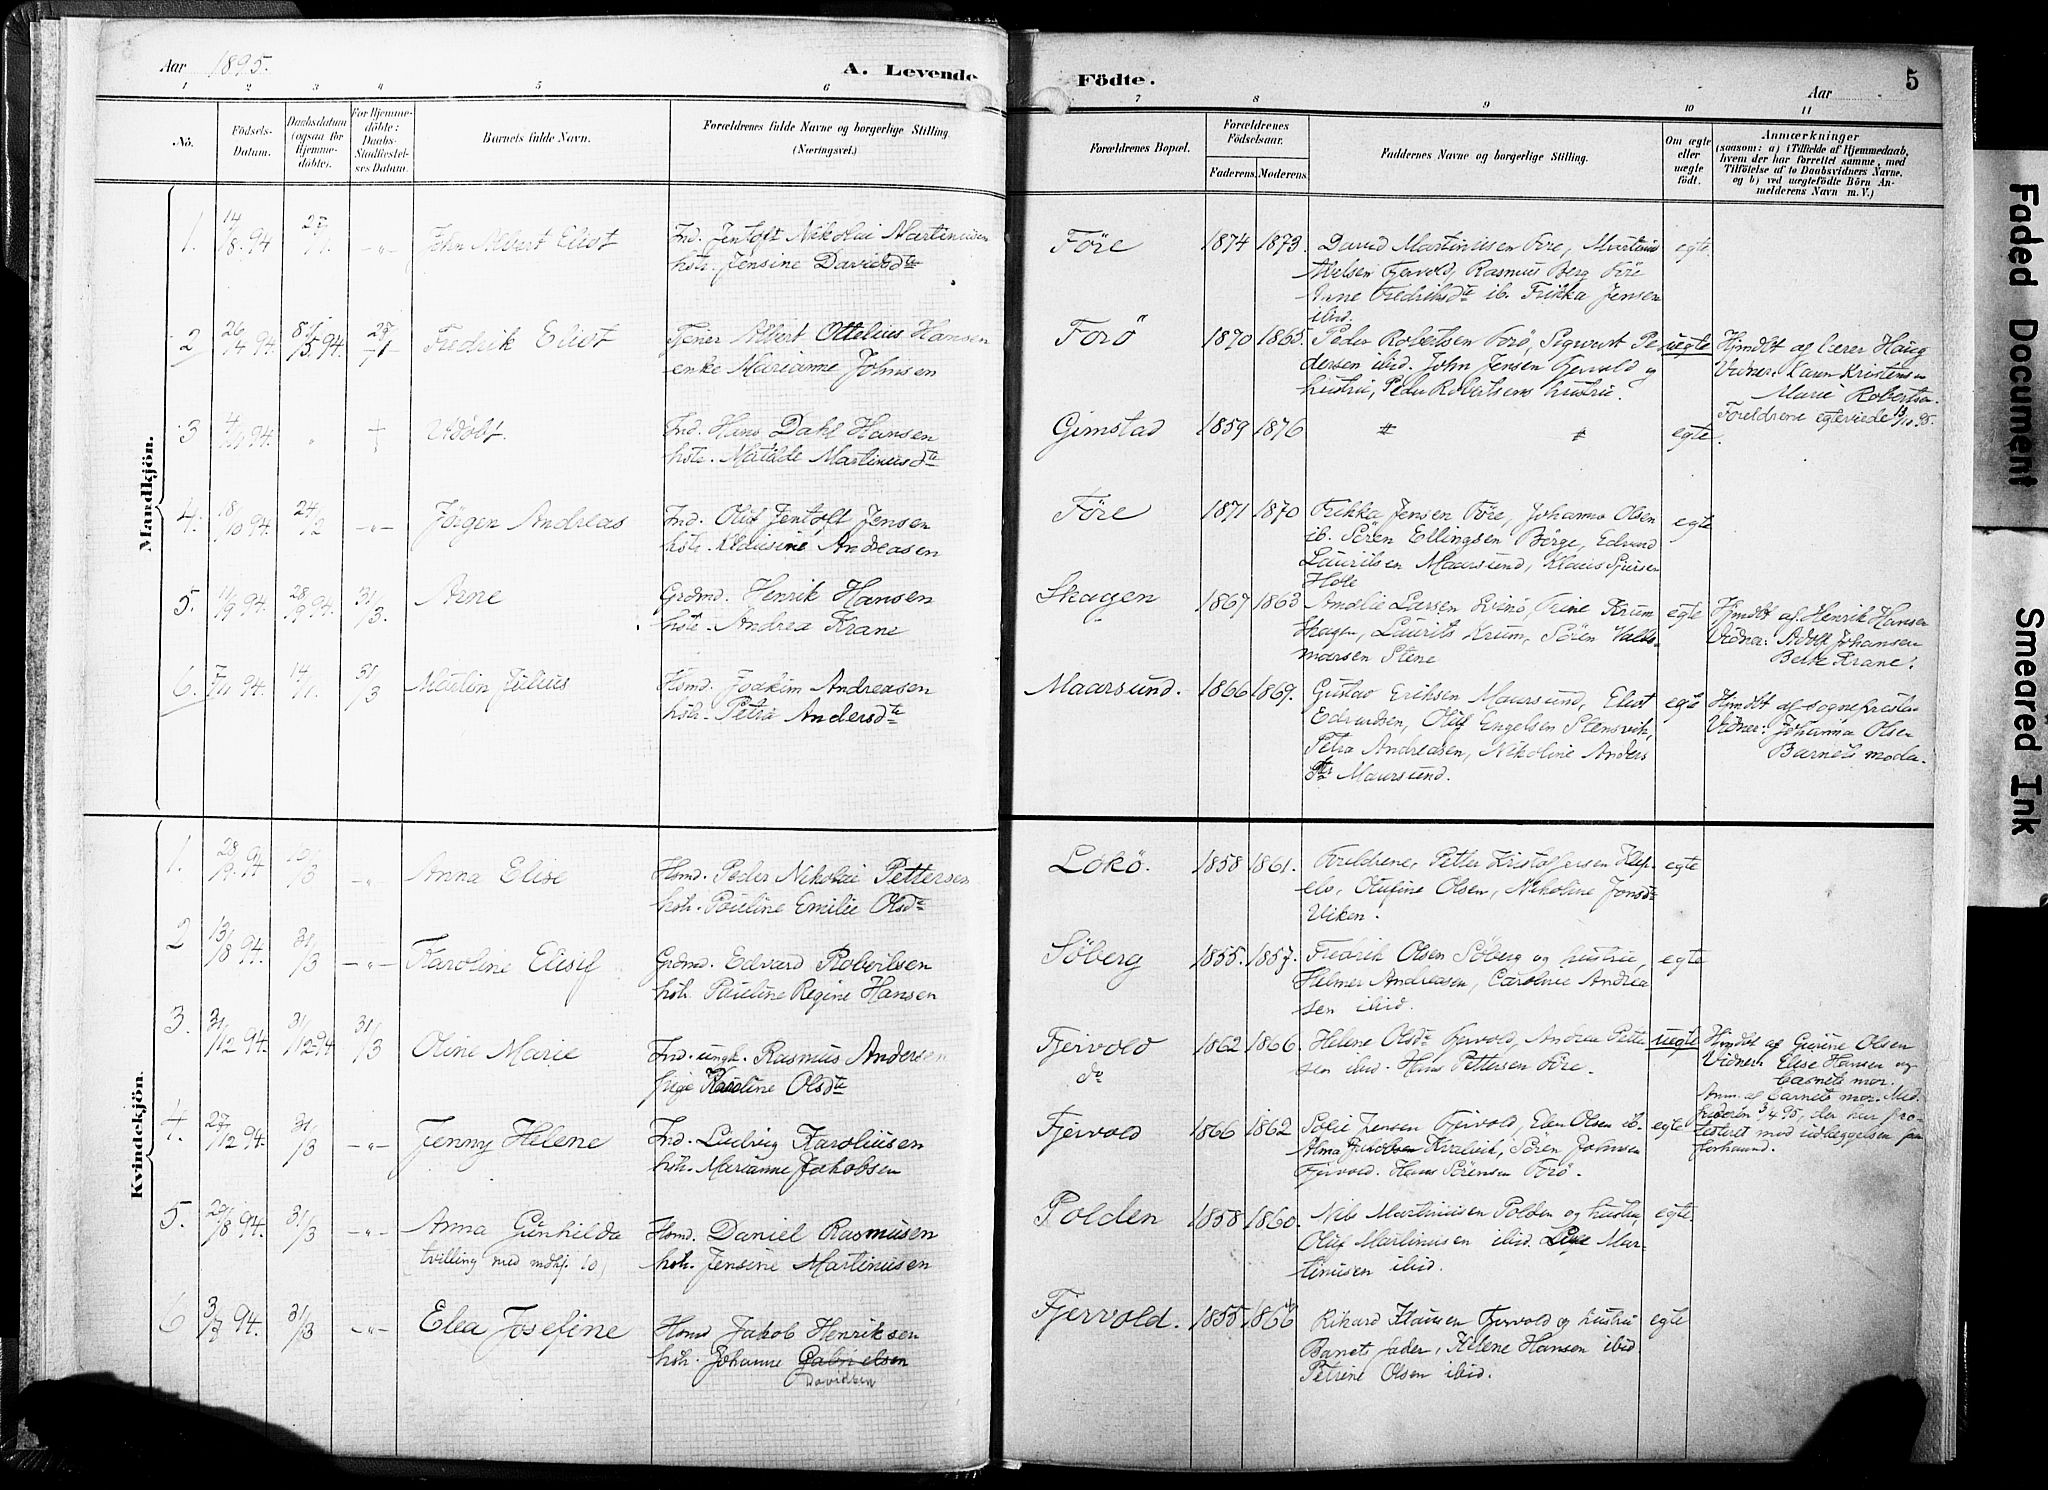 Aar 1895.
A. Levende
Födte.
Aar
5
1 2 3 4 5 6 7 8 9 10 11
No.
Födsels-
Datum.
Daabsdatum
(ogsaa for
Hjemme-
döbte).
For Hjemme-
döbte:
Daabs-
Stadfæstel-
ses Datum.
Barnets fulde Navn.
Forældrenes fulde Navne og borgerlige Stilling.
(Næringsvei.)
Forældrenes Bopæl.
Forældrenes
Födselsaar.
Faderens. Moderens.
Faddernes Navne og borgerlige Stilling.
Om ægte
eller
uægte
født.
Anmærkninger
(saasom: a) i Tilfælde af Hjemmedaab,
hvem der har forrettet samme, med
Tilföielse af to Daabsvidners Navne,
og b) ved uægtefödte Börn An-
melderens Navn m. V.)
Mandkjön.
1. 14/8 94 27/1. -„- John Albert Elist
Ind. Jentoft Nikolai Martinusen
hstr. Jensine Davidsdtr
Före 1874 1873. David Martinusen Före, Martinus
Abelsen Fjervold, Rasmus Berg Före
Anne Fredriksdtr ib. Frikka Jensen
ibid.
egte.
2 26/4 94. 8/5 94. 27/1 Fredrik Elist
Tjener Albert Ottelius Hansen
enke Marianne Johnsen
Forö 1870 1865. Peder Robertsen Forö, Sigvart Pe-
dersen ibid. John Jensen Fjervold og
hustru, Peder Robertsens hustru.
uegte
Hjmdbt af lærer Haug
Vidner: Karen Kristensen
Marie Robertsen.
Foreldrene egteviede 13/10 95.
3 Udöbt.
Ind. Hans Dahl Hansen
hstr. Matilde Martinusdtr
Gimstad 1859 1876 egte.
4. 18/10 94. 24/2 -„- Jörgen Andreas
Ind. Olif Jentoft Jensen
hstr. Klausine Andreasen
Före 1871 1870 Frikka Jensen Före, Johanna Olsen
ib. Sören Ellingsen Börge, Edvard
Lauritsen Maarsund, Klaus
egte
5. 11/9 94. 28/9 94. 31/3. Arne
Grdmd. Henrik Hansen
hstr. Andrea Krane
Skagen 1867 1863 Amalie Larsen Svinö, Trine Krum
Skagen, Laurits Krum, Sören Valde-
marsen Stene
egte
Hjmdbt af Henrik Hansen
Vidner: Adolf Johansen
Krane.
6. 7/11 94. 14/1. 31/3 Martin Julius
Hsmd. Joakim Andreasen
hstr. Petra Andersdtr
Maarsund. 1866 1869. Gustav Eriksen Maarsund, Elist
Edvardsen, Oluf Engelsen Stensvik,
Petra Andreasen, Nikoline Anders
dtr Maarsund.
egte
Hjmdbt af sognepresten
Vidner: Johanna Olsen
Barnets moder.
Kvindekjön.
1. 28/9 94 10/3 -„- Anna Elise
Hsmd. Peder Nikolai Pettersen
hstr. Pauline Emilie Olsdtr
Lokö. 1858 1861. Foreldrene, Petter Kristoffersen Klep-
elv, Olufine Olsen, Nikoline Jonsdtr
Viken.
egte
2 13/8 94. 31/3 -„- Karoline Elisif
Grdmd. Edvard Robertsen
hstr. Pauline Regine Hansen
Söberg 1855. 1857. Fredrik Olsen Söberg og hustru,
Helmer Andreasen, Caroline Andrea
sen ibid.
egte
3. 31/12 94. 31/12 94 31/3 Oline Marie
Ind. ungk. Rasmus Andersen
pige Karoline Olsdtr
Fjervold
do
1862 1866. Helene Olsdtr Fjervold, Andrea Petter
sen ibid. Hans Pettersen Före.
uegte
Hjmdbt af Gurine Olsen
Vidner: Elise Hansen og
barnets mor.
Anm. af barnets mor. Med
faderen 3/4 95, der har pro-
testeret mod udleggelsen som
barnefader
4. 27/12 94. 31/3 -„- Jenny Helene
Ind. Ludvig Karoliusen
hstr. Marianne Jakobsen
Fjervold 1866 1862 Sofie Jensen Fjervold, Elen Olsen ib.
Alma Jakobsen Kvalvik, Sören Johnsen
Fjervold. Hans Sörensen Forö.
egte
5. 29/8 94. 31/3 -„- Anna Gunhilda
(tvilling med mdkj. 10)
Hsmd. Daniel Rasmusen
hstr. Jensine Martinusen
Polden 1858 1860. Nils Martinusen Polden og hustru,
Oluf Martinusen ibid. Mar-
tinusen ibid.
egte
6 3/7 94. 31/3 -„- Elea Josefine
Hsmd Jakob Henriksen
hstr. Johanne Gabrielsen
Davidsen
Fjervold. 1855 1866 Rikard Klausen Fjervold og hustru
Barnets fader, Helene Hansen ibid
Petrine Olsen ibid.
egte
Faded Document
Smeared Ink